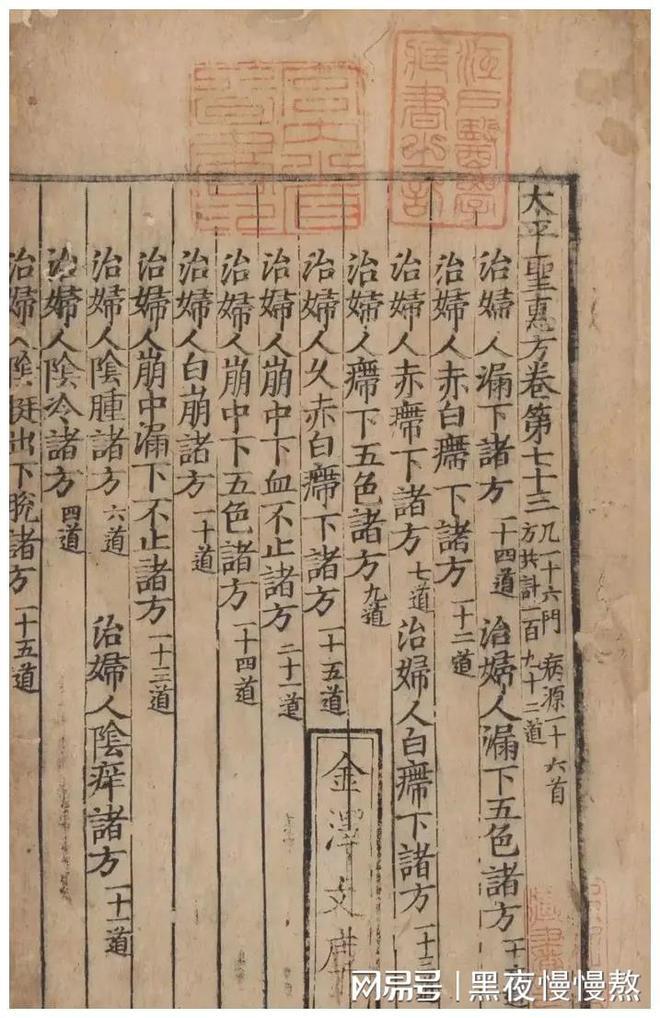 太平聖惠方卷第七十三 凡一十六門 病源一十六首 方共計一百九十二道
治婦人漏下諸方 一十四道 治婦人漏下五色諸方
治婦人赤白癦下諸方 一十二道
治婦人赤癦下諸方 七道 治婦人白癦下諸方 一十三
治婦人癦下五色諸方 九道
治婦人久赤白癦下諸方 一十五道
治婦人崩中下血不止諸方 二十一道
治婦人崩中下五色諸方 一十四道
治婦人白崩諸方 一十道
治婦人崩中漏下不止諸方 一十三道
治婦人陰腫諸方 六道 治婦人陰痒諸方 一十一道
治婦人陰冷諸方 四道
治婦人陰挺出下脫諸方 一十五道
江戶醫學藏書之記
金澤文庫
网易号 | 黑夜慢慢熬